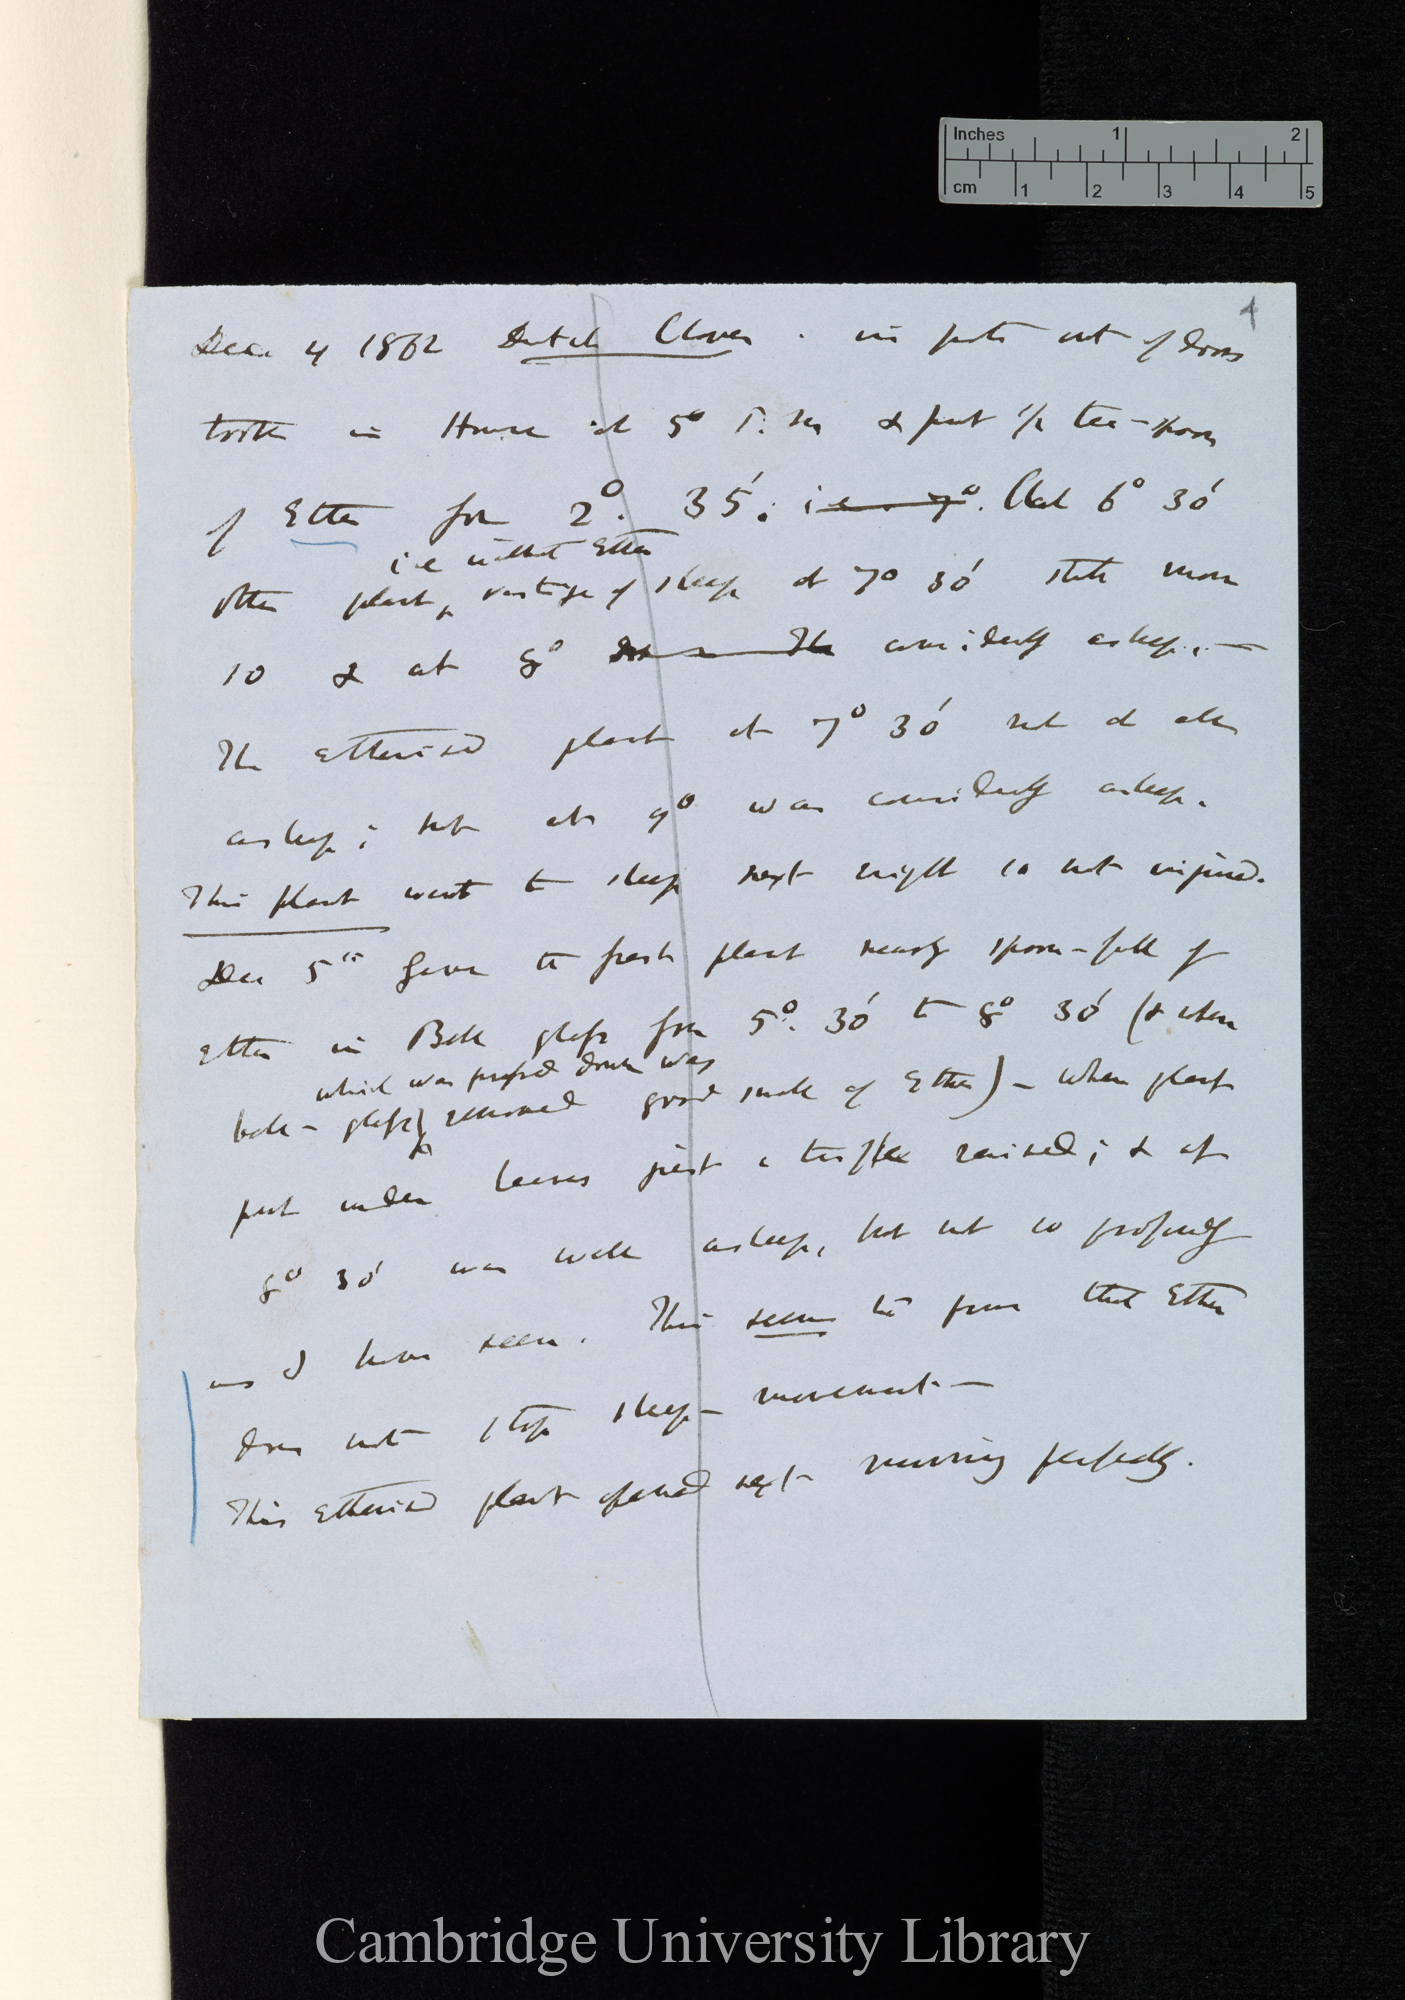 Inches 1 2
cm 1 2 3 4 5
4
Dec 4 1862 Dutch Clover. in pots out of doors
took in House at 5° P.m & put 1/2 tea-spoon
of Ether for 2°. 35'; i.e. 7°. Clad 6° 30'
i.e without Ether
other plant, vestige of sleep at 7° 30' still more
so & at 8° considerably asleep. —
The etherised plant at 7° 30' not at all
asleep; but at 9° was considerably asleep.
This plant went to sleep next night so not injured.
Dec 5th Gave to fresh plant nearly spoon-full of
Ether in Bell glass for 5°. 30' to 8° 30' (& when
which was pressed down was
bell-glass removed good smell of Ether) – when plant
put under leaves just a trifle raised; & at
8° 30' was well asleep, but not so profoundly
as I have seen. This seems to prove that Ether
does not stop sleep-movement. —
This etherised plant opened next morning perfectly.
Cambridge University Library